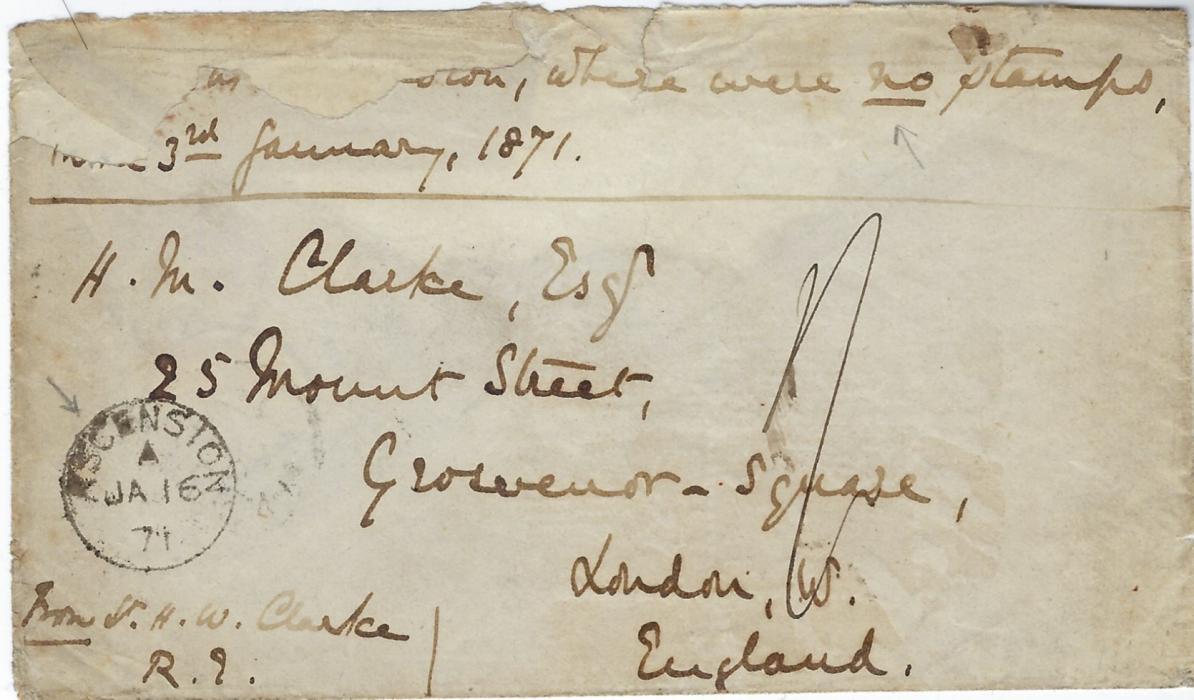 where were no stamps,
3rd January, 1871.
H. M. Clarke, Esqr
25 Mount Street,
Grosvenor-Square,
London, W.
England.
ASCENSION
A
JA 16
71
From Lt. H. W. Clarke
R. E.